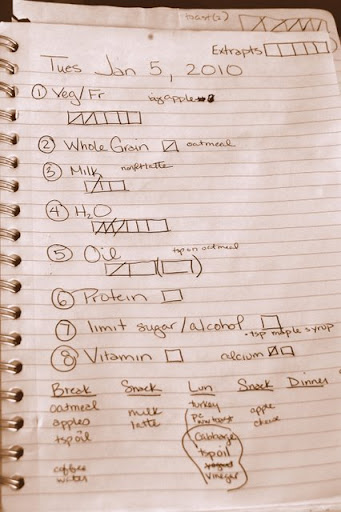 toast(s)
Extra pts
Tues Jan 5, 2010
① Veg/Fr big apple
② Whole Grain oatmeal
③ Milk nonfat latte
④ H2O
⑤ Oil tsp on oatmeal
⑥ Protein
⑦ limit sugar/alcohol
• tsp maple syrup
⑧ Vitamin calcium
Break Snack Lun Snack Dinner
oatmeal milk turkey apple
apples latte pc toast cheese
tsp oil cabbage
tsp oil
coffee
water vinegar